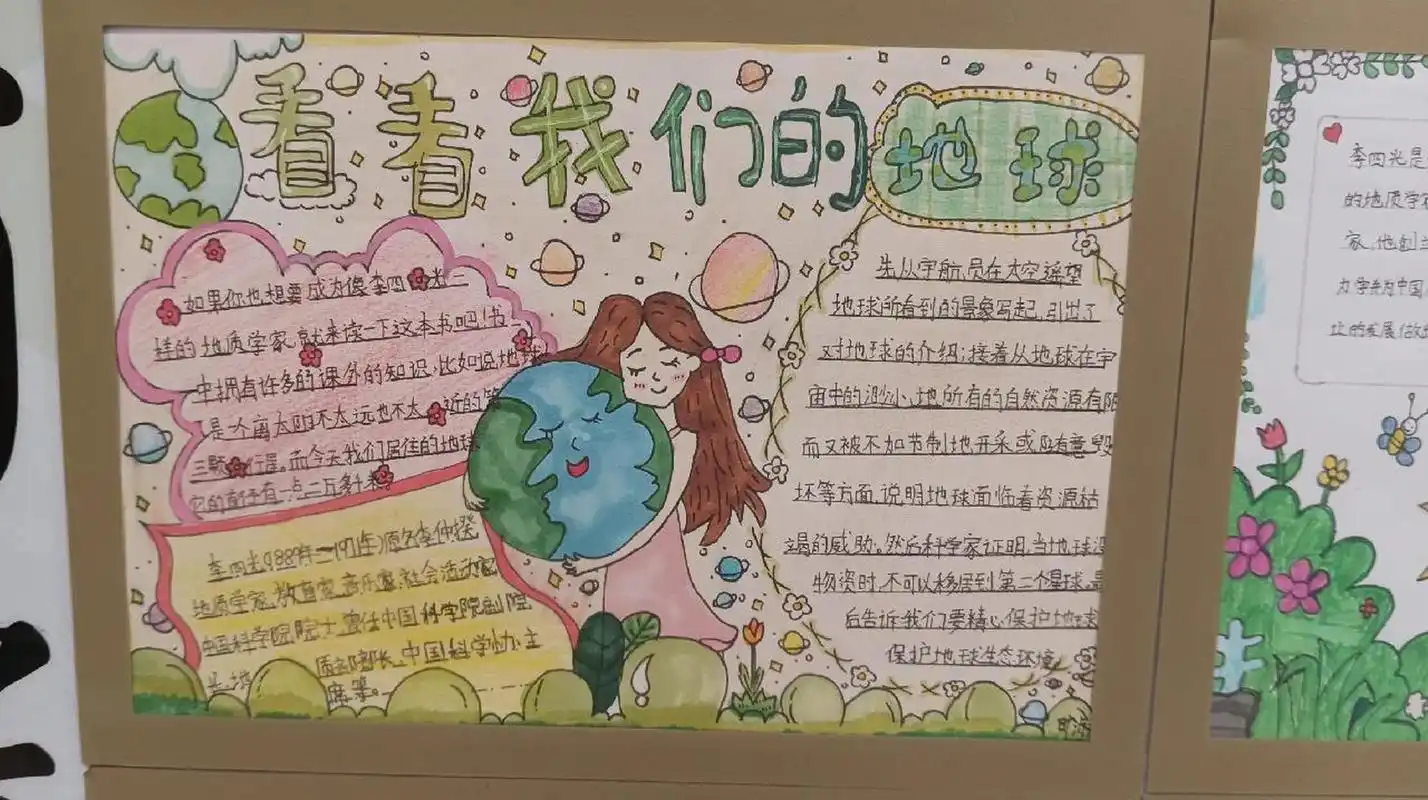 看看我们的地球
如果你也想要成为像李四光一
样的地质学家,就来读一下这本书吧!书
中拥有许多的课外的知识,比如说地球
是个离太阳不太远也不太近的第
三颗行星。而今天我们居住的地球
它的直径有一点二万多千米。
李四光(1889年—1971年)原名李仲揆
地质学家、教育家、音乐家、社会活动家
中国科学院院士,曾任中国科学院副院
长,地质部部长,中国科学协主
席等。
先从宇航员在太空遥望
地球所看到的景象写起,引出了
对地球的介绍;接着从地球在宇
宙中的渺小、地所有的自然资源有限
而又被不加节制地开采或随意毁
坏等方面,说明地球面临着资源枯
竭的威胁。然后科学家证明,当地球没
物资时,不可以移居到第二个星球,最
后告诉我们要精心保护地球
保护地球生态环境。
李四光是
的地质学家
家,他创立
力学并为中国
业的发展做出